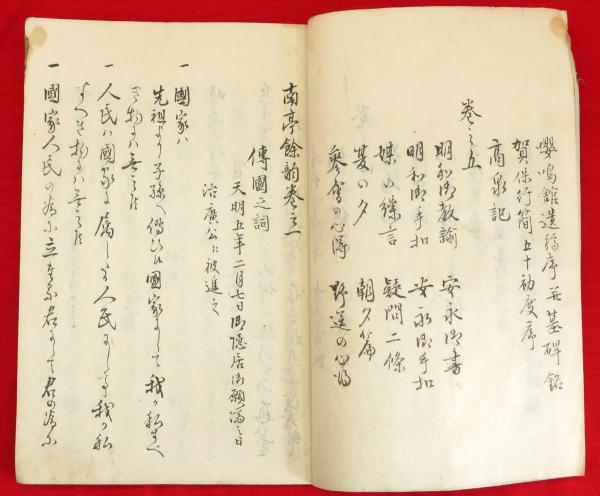 嚶鳴館遺稿序並墓碑銘
賀俟行簡五十初度序
高泉記
巻之五
明和御教諭 安永御書
明和御手扣 安永御手扣
婐の繰言 疑問二條
夏の夕 朝夕篇
養育の心得 野送の心得
南亭餘韵巻之一
傳國之詞
天明五年二月七日御隠居御願済之日
治廣公に被進之
一 國家ハ
先祖より子孫へ傳ひ候國家にして我私すべ
き物にハ無之候
一 人民ハ國家に属したる人民にして我私
すへき物にハ無之候
一 國家人民の為に立たる君にして君の為に